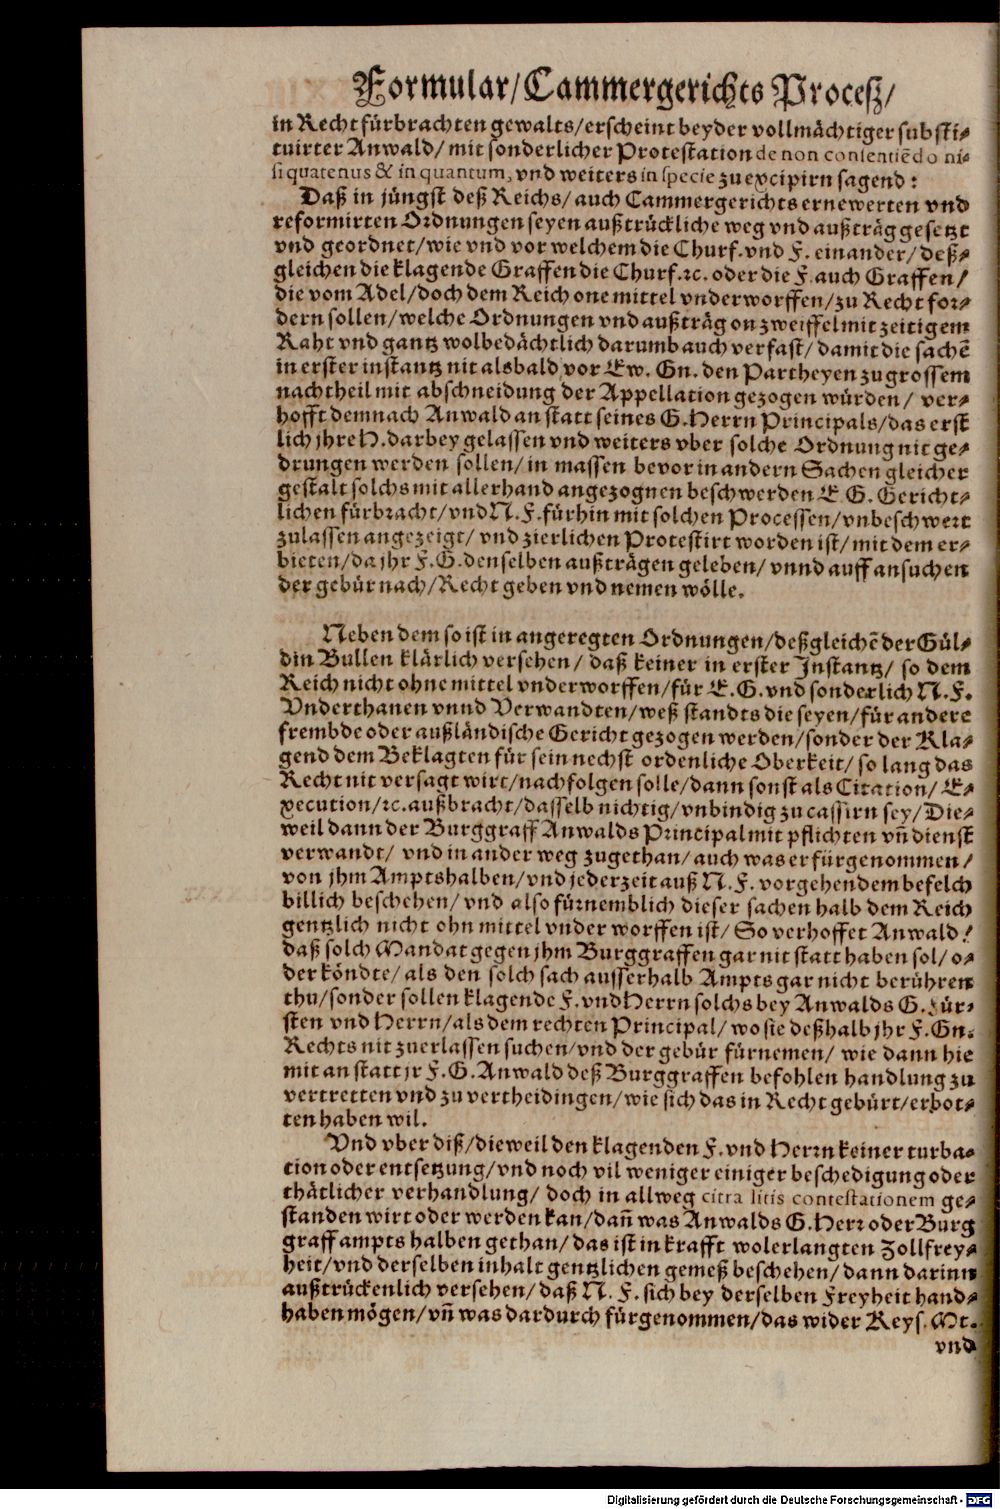 Formular/Cammergerichts Proceß/
in Recht fürbrachten gewalts/erscheint beyder vollmächtiger substi-
tuirter Anwald/ mit sonderlicher Protestation de non consentiẽdo ni-
si quatenus & in quantum, vnd weiters in specie zu excipirn sagend:
Daß in jüngst deß Reichs/ auch Cammergerichts ernewerten vnd
reformirten Ordnungen seyen außtrückliche weg vnd außträg gesetzt
vnd geordnet/wie vnd vor welchem die Churf. vnd F. einander/ deß-
gleichen die klagende Graffen die Churf. ꝛc. oder die F. auch Graffen/
die vom Adel/doch dem Reich one mittel vnderworffen/zu Recht for-
dern sollen/welche Ordnungen vnd außträg on zweiffel mit zeitigem
Raht vnd gantz wolbedächtlich darumb auch verfast/ damit die sachẽ
in erster instantz nit alsbald vor Ew. Gn. den Partheyen zu grossem
nachtheil mit abschneidung der Appellation gezogen würden/ ver-
hofft demnach Anwald an statt seines G. Herrn Principals/das erst
lich jhre H. darbey gelassen vnd weiters vber solche Ordnung nit ge-
drungen werden sollen/in massen bevor in andern Sachen gleicher
gestalt solchs mit allerhand angezognen beschwerden E. G. Gericht-
lichen fürbracht/vnd N. F. fürhin mit solchen Processen/vnbeschwert
zulassen angezeigt/ vnd zierlichen Protestirt worden ist/mit dem er-
bieten/da jhr F. G. denselben außträgen geleben/ vnnd auff ansuchen
der gebür nach/Recht geben vnd nemen wölle.
Neben dem so ist in angeregten Ordnungen/deßgleichẽ der Gül-
din Bullen klärlich versehen/ daß keiner in erster Instantz/ so dem
Reich nicht ohne mittel vnderworffen/für E. G. vnd sonderlich N. F.
Vnderthanen vnnd Verwandten/weß standts die seyen/für andere
frembde oder außländische Gericht gezogen werden/sonder der Kla-
gend dem Beklagten für sein nechst ordenliche Oberkeit/ so lang das
Recht nit versagt wirt/nachfolgen solle/dann sonst als Citation/ E-
xecution/ꝛc. außbracht/dasselb nichtig/vnbindig zu cassirn sey/Die-
weil dann der Burggraff Anwalds Principal mit pflichten vñ dienst
verwandt/ vnd in ander weg zugethan/auch was er fürgenommen/
von jhm Amptshalben/vnd jederzeit auß N. F. vorgehendem befelch
billich beschehen/ vnd also fürnemblich dieser sachen halb dem Reich
gentzlich nicht ohn mittel vnder worffen ist/ So verhoffet Anwald/
daß solch Mandat gegen jhm Burggraffen gar nit statt haben sol/o-
der köndte/als den solch sach ausserhalb Ampts gar nicht berühren
thu/sonder sollen klagende F. vnd Herrn solchs bey Anwalds G. Für-
sten vnd Herrn/als dem rechten Principal/wo sie deßhalb jhr F. Gn.
Rechts nit zuerlassen suchen/vnd der gebür fürnemen/ wie dann hie
mit an statt jr F. G. Anwald deß Burggraffen befohlen handlung zu
vertretten vnd zu vertheidingen/wie sich das in Recht gebürt/erbot-
ten haben wil.
Vnd vber diß/dieweil den klagenden F. vnd Herrn keiner turba-
tion oder entsetzung/vnd noch vil weniger einiger beschedigung oder
thätlicher verhandlung/ doch in allweg citra litis contestationem ge-
standen wirt oder werden kan/dañ was Anwalds G. Herr oder Burg
graff ampts halben gethan/das ist in krafft wolerlangten Zollfrey-
heit/vnd derselben inhalt gentzlichen gemeß beschehen/dann darinn
außtrückenlich versehen/daß N. F. sich bey derselben Freyheit hand-
haben mögen/vñ was dardurch fürgenommen/das wider Keys. Mt.
vnd
Digitalisierung gefördert durch die Deutsche Forschungsgemeinschaft - DFG